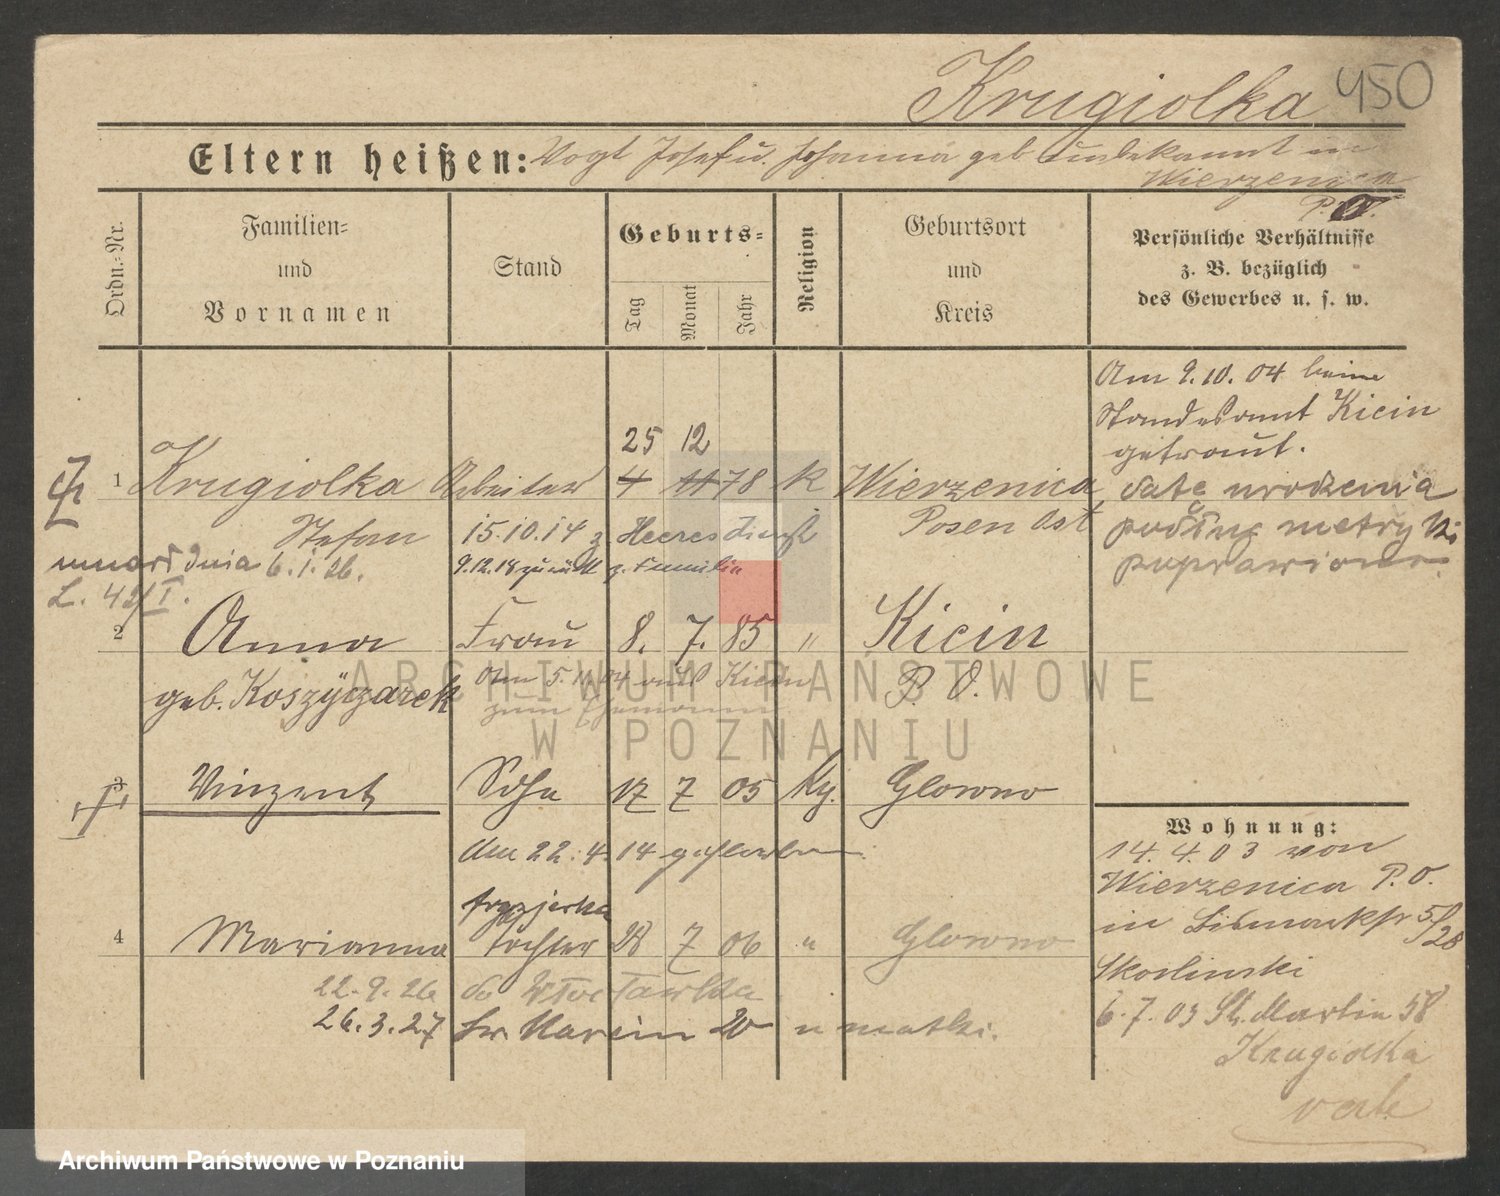 Krugiolka 450
Eltern heißen: Vogt Josef u. Johanna geb unbekannt in
Wierzenica
P. O.
Ordn.-Nr.
Familien-
und
Vornamen
Stand
Geburts-
Tag
Monat
Jahr
Religion
Geburtsort
und
Kreis
Persönliche Verhältnisse
z. B. bezüglich
des Gewerbes u. s. w.
Am 9.10.04 beim
Standesamt Kicin
getraut.
datę urodzenia
podług metryki
poprawiono
25 12
1 Krugiolka Arbeiter 4 11 78 k Wierzenica
Stefan 15.10.14 z Heeresdienst Posen Ost
umarł dnia 6.1.26. 9.12.18 zurück z. Familie
L. 42/I.
2 Anna Frau 8. 7. 85 " Kicin
geb. Koszÿczarek Am 5.11.04 aus Kicin P. O.
zum Ehemann
3 Vinzent Sohn 17 7 05 kg. Glowno
Am 22.4.14 gestorben.
fryzjerka
4 Marianna Tochter 28 7 06 " Glowno
22.9.26 do Włocławka
26.3.27 św. Marcin 20 u matki.
Wohnung:
14.4.03 von
Wierzenica P. O.
in Bismarkstr 5/
28
Skorlinski
6.7.03 St. Martin 58
Krugiolka
verh
ARCHIWUM PAŃSTWOWE
W POZNANIU
Archiwum Państwowe w Poznaniu